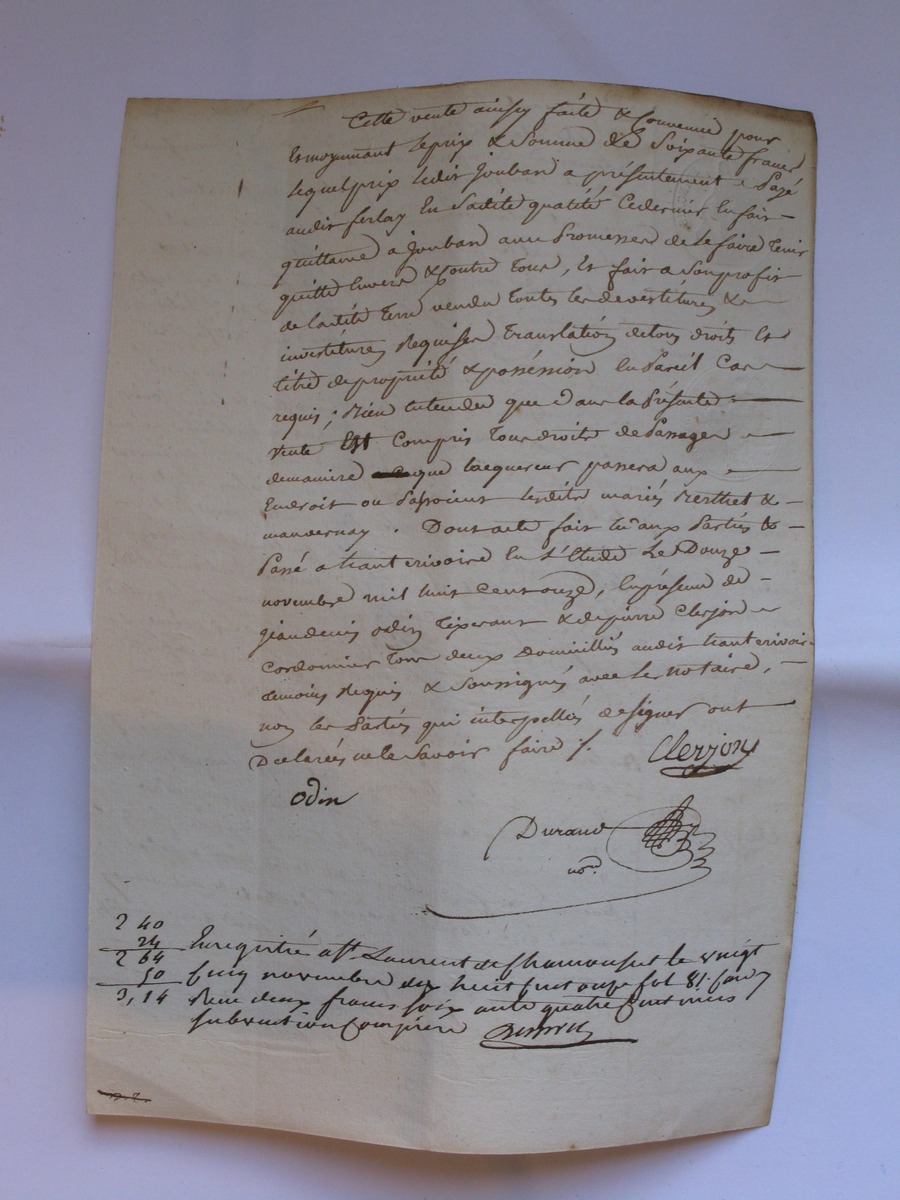 Cette vente ainsy faite & Convenue pour
Et moyennant le prix & Somme de Soixante francs
lequel prix ledit Jouban a présentement Payé
audit ferlay En Sadite qualité Ce dernier En fait
quittance a Jouban avec Promesse de le faire Tenir
quitte Envers & Contre Tous, Et fait a Son profit
de ladite Terre vendu toutes les devestitures &
investitures Requises Translation de tous droits Et
titre de propriété & posséssion En Pareil Cas
requis; Bien Entendu que dans la Présente
vente Est Compris Tous droits de Passages
de maniere que l'acquereur passera aux
Endroit ou Passoient lesdits mariés Berthet &
manvernay. Dont acte fait lu aux Parties &
Passé a haute rivoire En l'Etude Le Douze
novembre mil huit Cent onze, En présence de
Jean denis odin Tixerant & de pierre Clerjon
Cordonnier Tous deux Domiciliés audit haute rivoire
temoins Requis & Soussignés avec le notaire,
non les Parties qui interpellés de signer ont
Declarées ne le Savoir faire /.
Clerjon
odin
Durand
no.re
2 40
24
2 64
50
3, 14
Enregistré a St. Laurent de Chamousset le vingt
Cinq novembre dix huit Cent onze fol 81.
Reçu deux francs soixante quatre Centimes
subvention Comprise